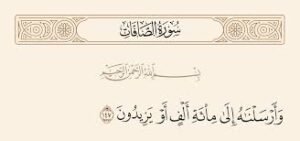 سُورَةُ الصَّافَّاتِ
بِسْمِ اللَّهِ الرَّحْمَٰنِ الرَّحِيمِ
وَأَرْسَلْنَٰهُ إِلَىٰ مِا۟ئَةِ أَلْفٍ أَوْ يَزِيدُونَ ١٤٧